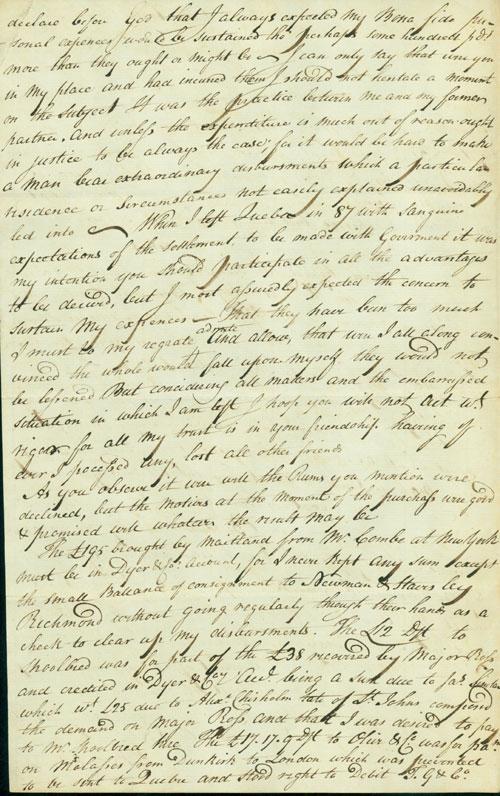 declare before God that I always expected my Bona fide per-
sonal expences would be sustained tho' perhaps some hundreds pds.
more than they ought or might be I can only say that were you
in my place and had incurred them I should not hesitate a moment
on the subject It was the practice between me and my former
partner. And unless the expenditure is much out of reason ought
in justice to be always the case; for it would be hard to make
a man bear extraordinary disbursments which a particular
residence or circumstances not easily explained unavoidably
led into When I left Quebec in 87 with sanguine
expectations of the settlement, to be made with Goverment it was
my intention you should participate in all the advantages
to be derived, but I most assuredly expected the concern to
sustain my expences - That they have been too much
I must to my regrate admit and allow, that were I all along con-
vinced the whole would fall upon myself they would not
be lessened But considering all matters and the embarrassed
situation in which I am left I hope you will not act wt.
rigor for all my trust is in your friendship having if
ever I possessed any, lost all other friends
As you observe it were well the Rums you mention were
declined, but the motives at the moment of the purchase were good
& promised well whatever the result may be
The £195 brought by Maitland from Mr. Combe at New York
must be in Dyer & Co. Account, for I never kept any sum except
the small Ballance of consignment to Newman & Stairs by
Richmond without going regularly through their hands as a
check to clear up my disbursments. The £12 Dft to
Shoolbred was for part of the £38 received by Major Ross
and credited in Dyer & Coy Acct. being a sum due to
which wt. £25 due to Alexr. Chisholm late of St. Johns composed
the demand on Major Ross and that I was desired to pay
to Mr Shoolbred The £17.17.9 Dft to & Co was for
on Molasses from Dunkirk to London which was prevented
to be sent to Quebec and stood right to Debit & Co.